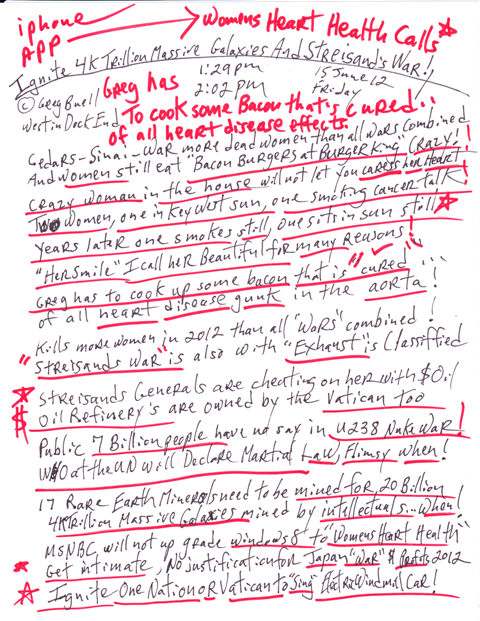 iphone
APP
Womens Heart Health Calls
Ignite 4K Trillion Massive Galaxies And Streisand's War!
Greg has 1:29pm 15 June 12
© Greg Buell 2:02 PM Friday
West in Dock End To cook some Bacon that's cured..
of all heart disease effects.
Cedars-Sinai - War more dead women than all wars combined
And women still eat "Bacon Burgers at Burger King" Crazy!
Crazy woman in the house will not let you caress her Heart!
Two Women, one in Key West sun, one smoking cancer talk!
Years later one smokes still, one sits in sun still!
"Her Smile" I call her Beautiful for many reasons!
Greg has to cook up some bacon that is "cured"
of all heart disease gunk in the aorta!
Kills more women in 2012 than all "Wars" combined!
"Streisands War" is also with "Exhaust" is Classiffied
Streisands Generals are cheating on her with $ Oil
$ Oil Refinery's are owned by the Vatican too
Public 7 Billion people have no say in U238 Nuke War!
at the UN will Declare Martial Law, Flimsy when!
17 Rare Earth Minerals need to be mined for 20 Billion
4K Trillion Massive Galaxies mined by intellectuals...when!
MSNBC will not up grade windows 8 to "Womens Heart Health"
Get intimate, No justification for Japan "War" $ Profits 2012
Ignite One Nation or Vatican to "Sing" Electric Windmill Car!